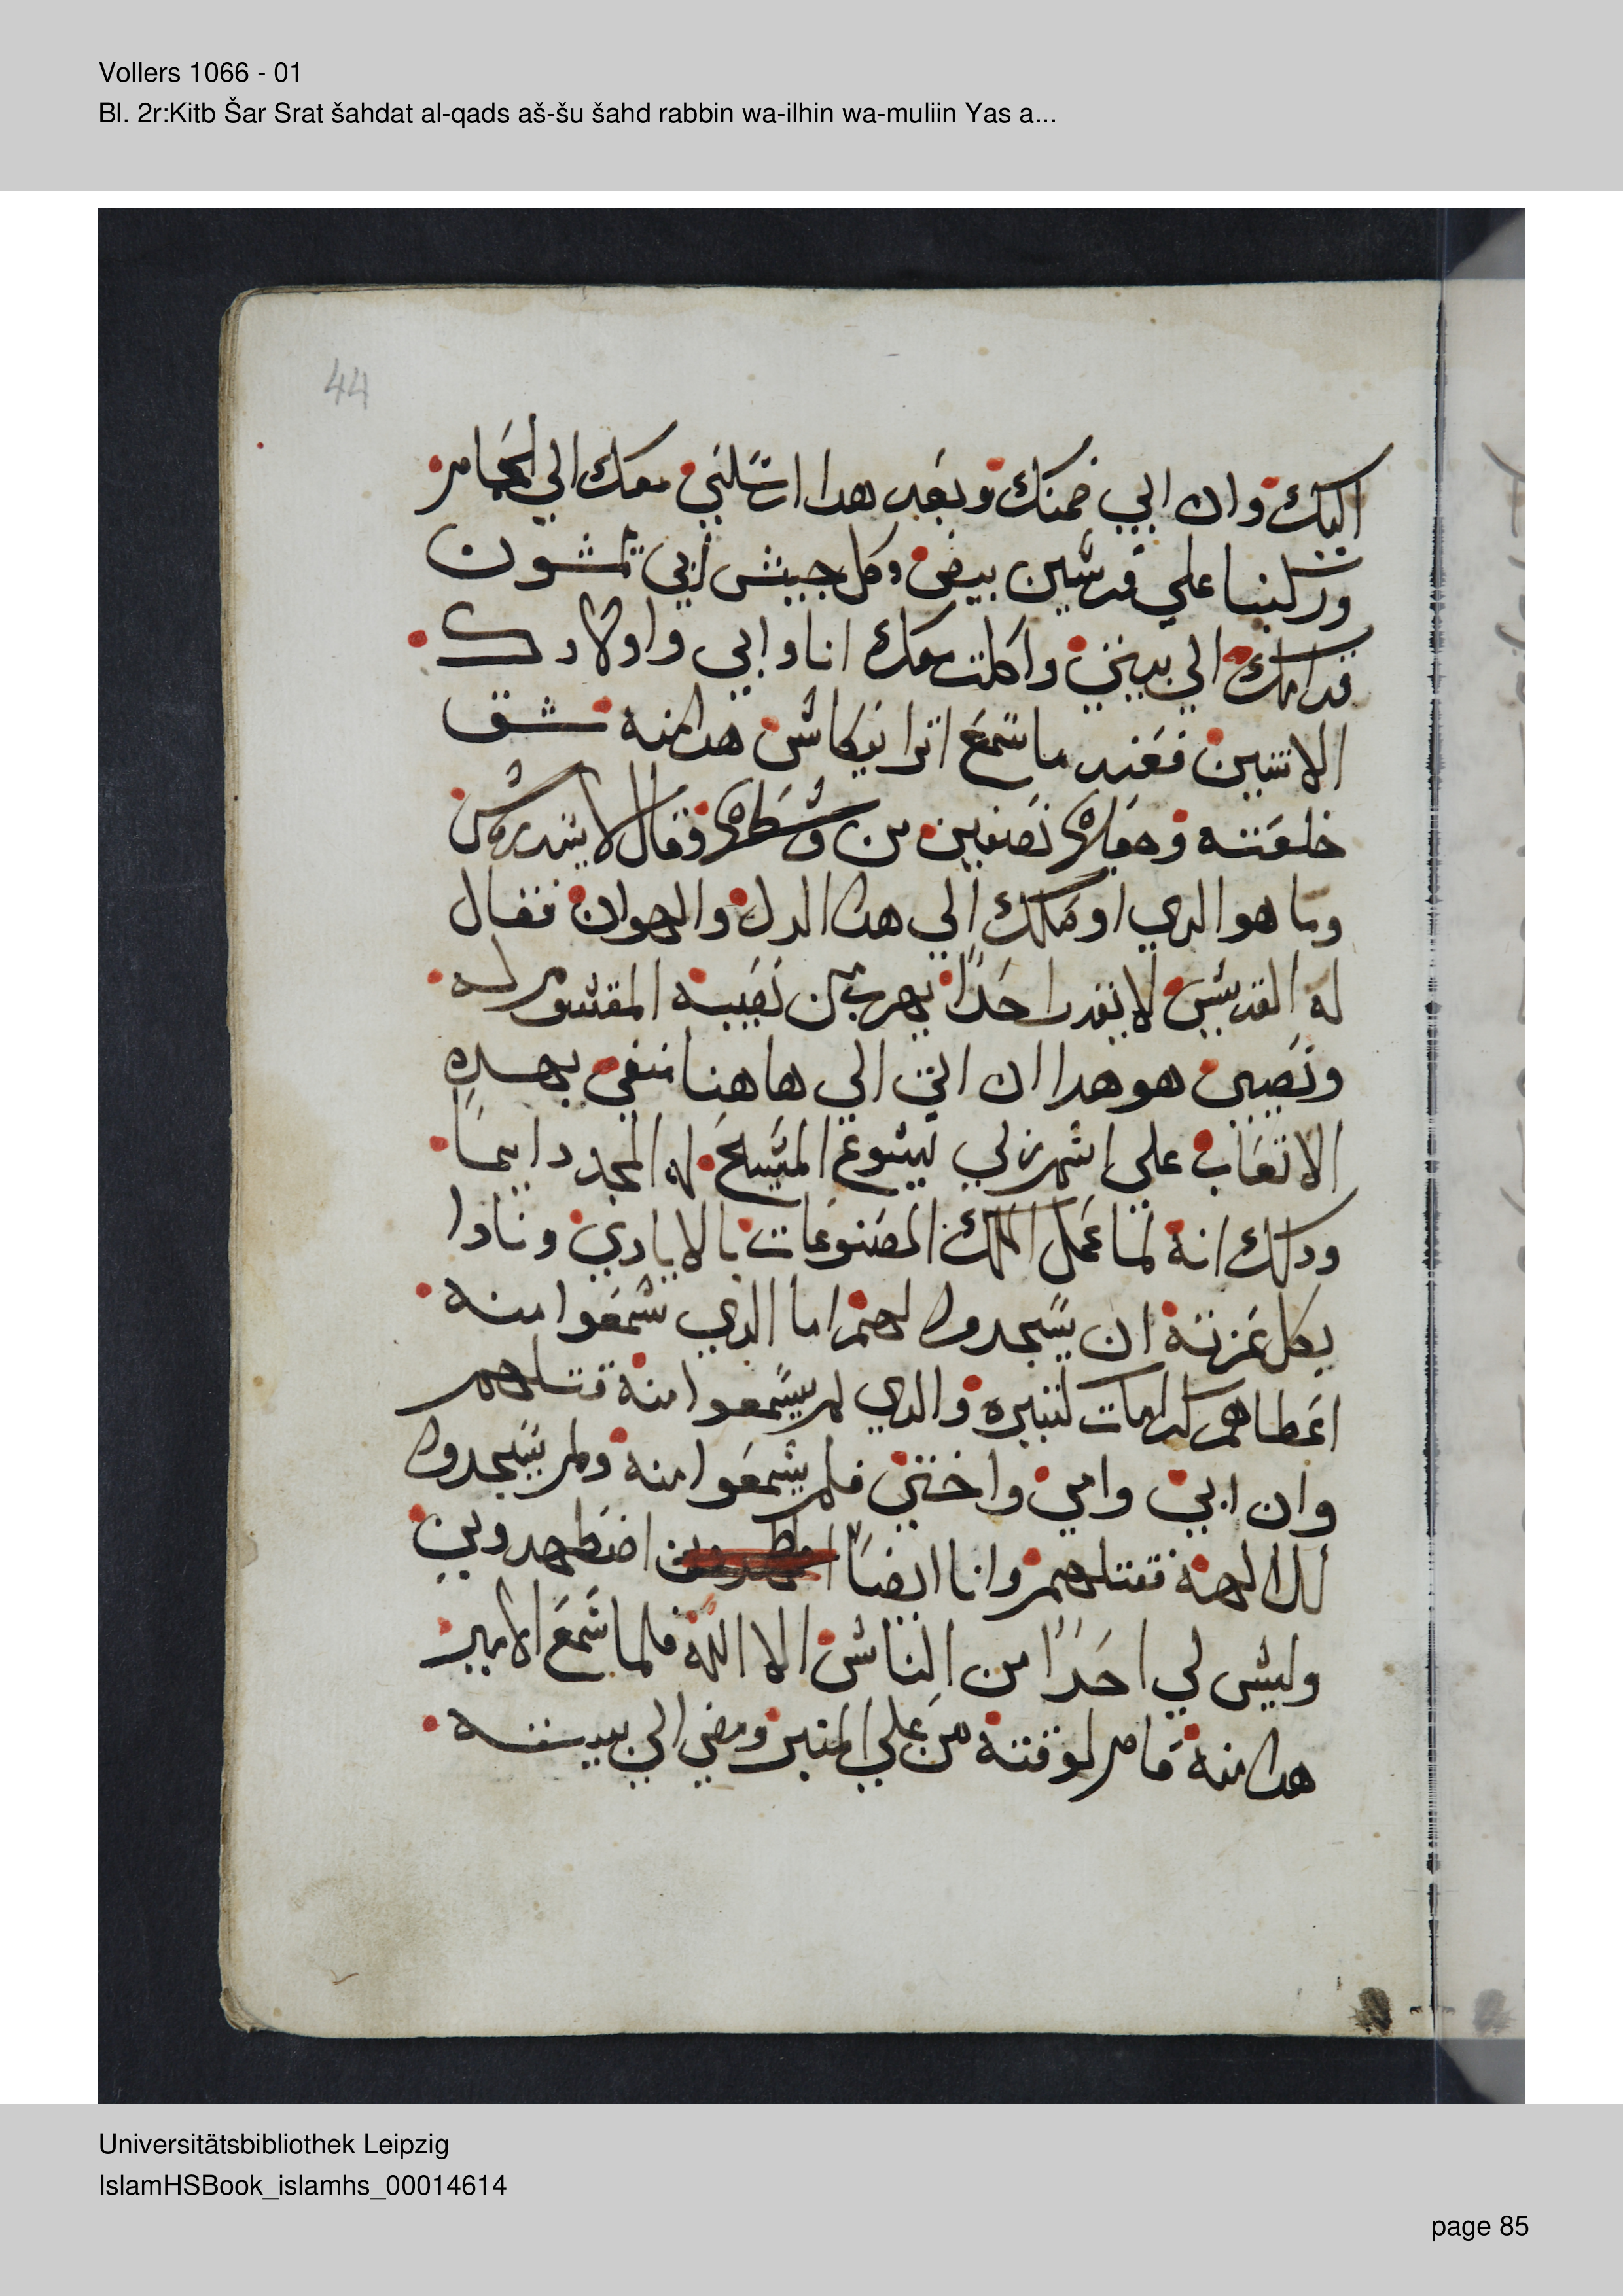 Vollers 1066 - 01
Bl. 2r:Kitb Šar Srat šahdat al-qads aš-šu šahd rabbin wa-ilhin wa-muliin Yas a...
44
اليك وان ابي ضمنك وبعد هدا ارسلني معك الي الحمام
وركبنا علي فرسين بيض وكل جيش ابي يمشون
قدامك الي بيتي واكلت معك انا وابي واولادك
الاتنين فعند ما سمع اترانيكاس هدا منه شق
خلعته وجعلها نصفين من وسطها وقال لايسدرس
وما هو الدي اوصلك الي هدا الدل والهوان فقال
له القديس لا يقدر احدا يهرب من نصيبه المقسوم له
ونصيبي هو هدا ان اتي الي هاهنا منفي بهده
الاتعاب علي اسم ربي يسوع المسيح له المجد دايما
ودلك انه لما عمل الملك المصنوعات بالايادي ونادا
بكل عزته ان يسجدوا لهم اما الدي سمعوا منه
اعطاهم كرامات كتيره والدي لم يسمعوا منه قتلهم
وان ابي وامي واختي فلم يسمعوا منه ولم يسجدوا
لدا الهته فقتلهم وانا ايضا اضطهدوني
وليس لي احدا من الناس الا الله فلما سمع الامير
هدا منه قام لوقته من علي المنبر ومضي الي بيته
Universitätsbibliothek Leipzig
IslamHSBook_islamhs_00014614
page 85